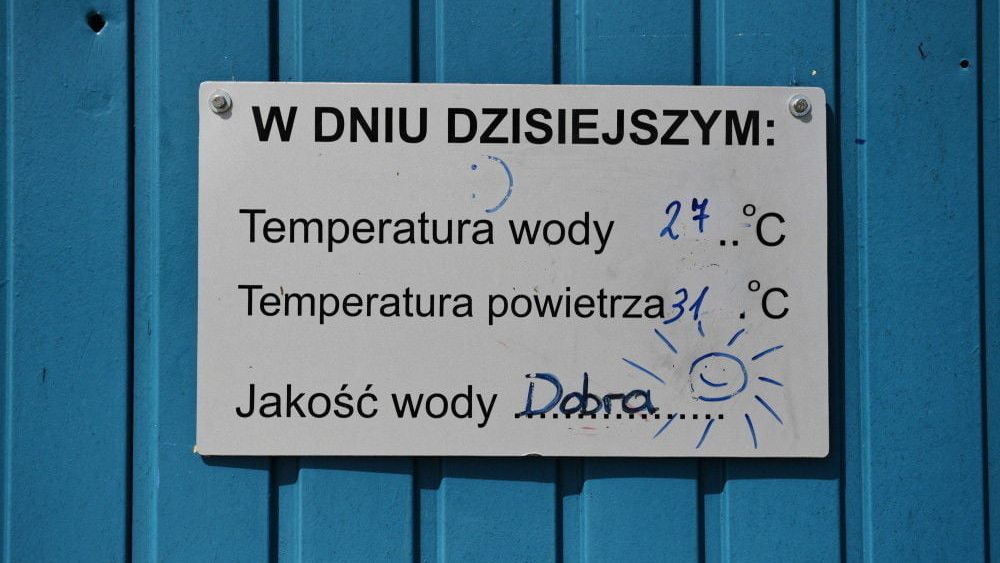 W DNIU DZISIEJSZYM:
:)
Temperatura wody 27..°C
Temperatura powietrza 31.°C
Jakość wody ....Dobra....